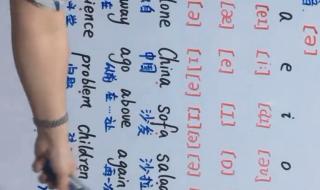 [ə]
a e i o
[eɪ] [i:] [aɪ] [əʊ]
[æ] [e] [ɪ] [ɒ]
[ə] [ɪ][ə] [ɪ][ə] [ə]
lone China sofa salad
自 中国 沙发 沙拉
way ago above again
以前 在
ience problem children